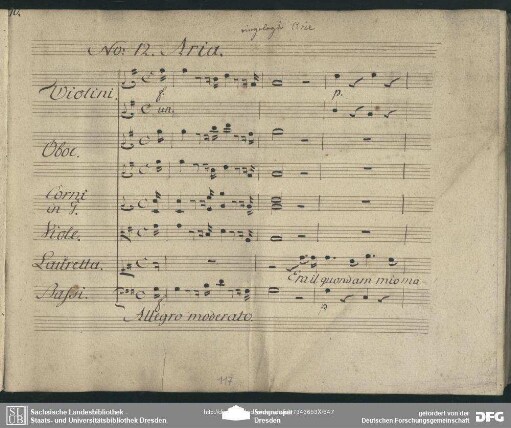 No: 12. Aria.
Violini.
f.
p.
un.
Oboe.
Corni
in G.
Viole.
Lauretta.
Era il quondam mio ma-
Bassi.
f.
p
Allegro moderato.
117
SLUB
Sächsische Landesbibliothek
Staats- und Universitätsbibliothek Dresden
Dresden
gefördert von der
Deutschen Forschungsgemeinschaft
DFG